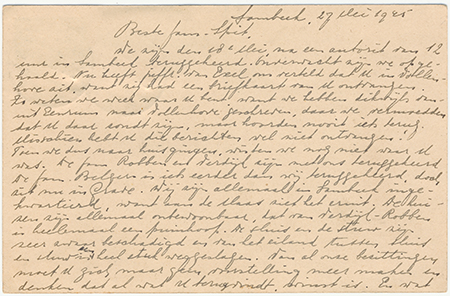 Sambeek, 27 Mei 1945
Beste fam. Spit,
We zijn den 18e Mei, na een autorit van 12
uur in Sambeek teruggekeerd. Onverwacht zijn we opge-
haald. Nu heeft juffr. van Exel ons verteld dat U in Vollen-
hove zit, want zij had een briefkaart van U ontvangen.
Zo weten we weer waar U bent, want we hebben dikwijls van-
uit naar Vollenhove geschreven, daar we vermoedden
dat U daar zoudt zijn, maar hoorden nooit iets terug.
Misschien hebt U die berichten wel niet ontvangen.
Toen we dus naar huis gingen, wisten we nog niet waar U
was. De fam. Robben en Verdijk zijn met ons teruggekeerd
De fam. Belgers is iets eerder dan wij teruggekeerd, doch
zit nu in Grave. Wij zijn allemaal in Sambeek inge-
kwartierd, want aan de Maas ziet het eruit. De hui-
zen zijn allemaal onbewoonbaar, dat van Verdijk-Robben
is heelemaal een puinhoop. De sluis en de stuw zijn
zeer zwaar beschadigd en van het eiland tusschen sluis
en stuw is een heel stuk weggeslagen. Van al onze bezittingen
moet U zich maar geen voorstelling meer maken en
denken dat al wat U terugvindt, winst is. En wat